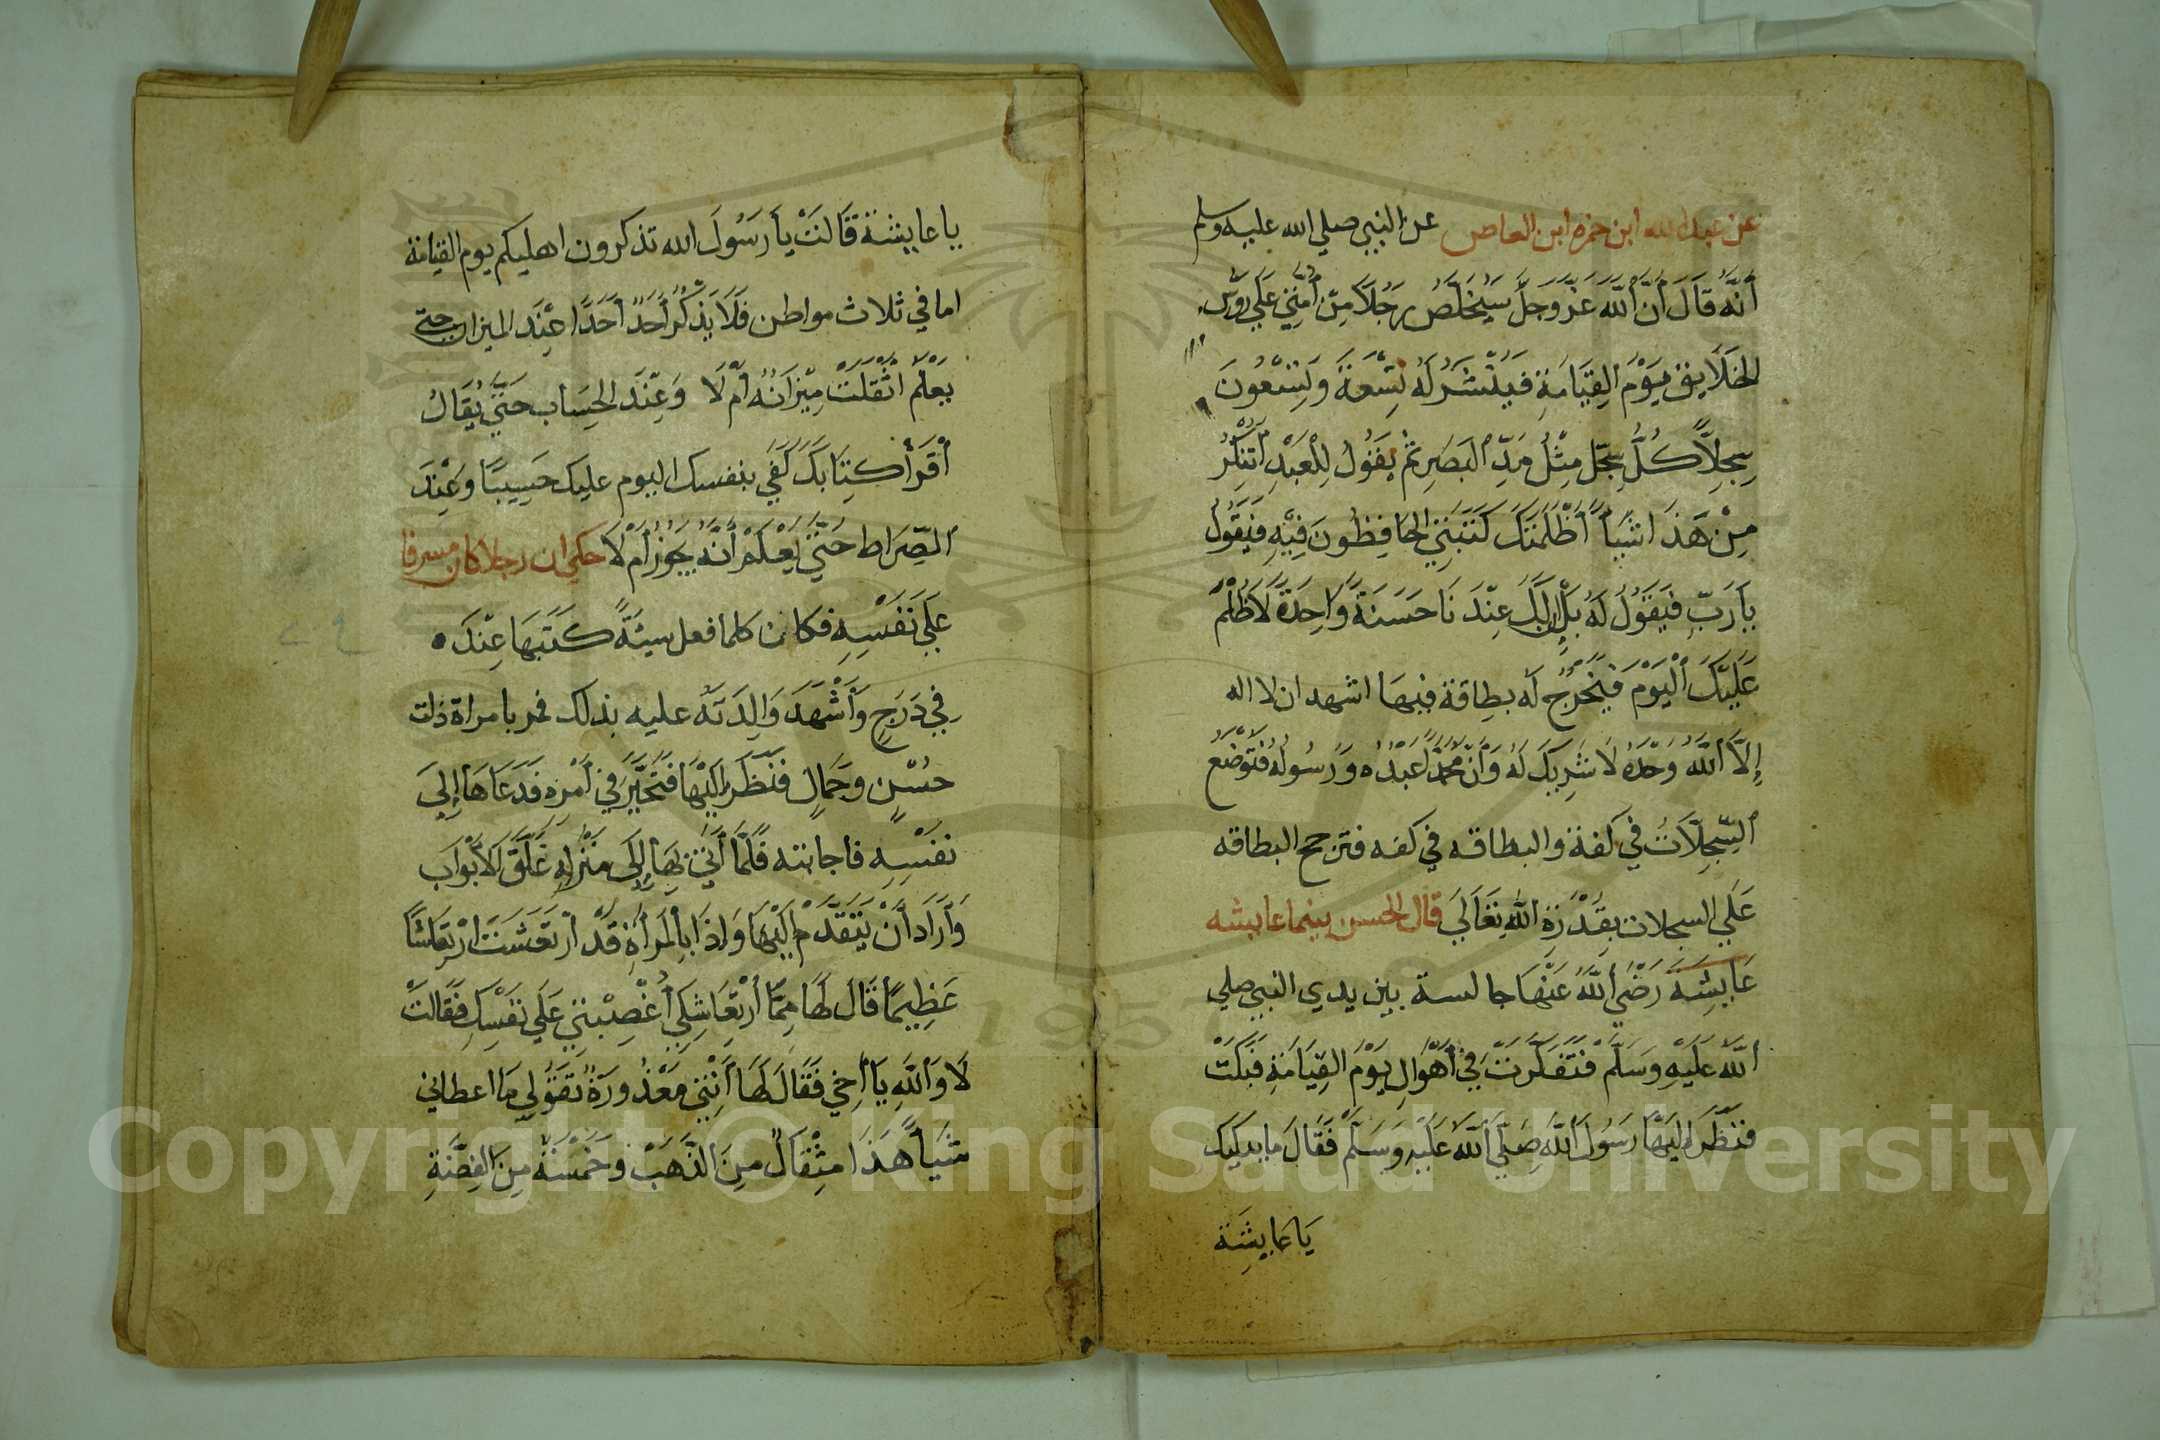 عن عبد الله ابن حمزه ابن العاص عن النبي صلي الله عليه وسلم
أَنَّهُ قَالَ أَنَّ ٱللَّهَ عَزَّ وَجَلَّ سَيُخَلِّصُ رَجُلًا مِنْ أُمَّتِي عَلَي رُوُسِ
الخَلَايِقِ يَوْمَ القِيَامَةِ فَيُنْشَرُ لَهُ تِسْعَةَ وَتِسْعُونَ
سِجِلًّا كُلُّ سِجِلٍّ مِثْلُ مَدِّ ٱلبَصَرِ ثُمَّ يَقُولُ لِلْعَبْدِ أَتُنْكِرُ
مِنْ هَذَا شَيْاً أَظَلَمَتْكَ كَتَبَتِي الحَافِظُونَ فِيْهِ فَيَقُولُ
يَا رَبِّ فَيَقُولُ لَهُ بَلْ إِنَّ لَكَ عِنْدَنَا حَسَنَةً وَاحِدَةً لَا ظُلْمَ
عَلَيْكَ ٱلْيَوْمَ فَيَخْرُجُ لَهُ بِطَاقَة فيهَا اشهد ان لا اله
إِلَّا ٱللَّهُ وَحْدَهُ لَا شَرِيكَ لَهُ وَأَنَّ مُحَمَّدًا عَبْدُه وَرَسُولُهُ فَتُوضَعُ
ٱلسِّجِلَّاتُ في كَفة والبطاقه في كفه فترجح البطاقه
عَلَي السجلات بِقُدْرَةِ ٱللَّهِ تَعَالَي قال الحسن بينما عايشه
عَايِشَةَ رَضْيَ ٱللَّهُ عَنْهَا جالسة بين يدي النبي صلي
ٱللَّهُ عَلَيْهِ وَسَلَّمْ فَتَفَكَّرَتْ فِي أَهْوَالِ يَوْمَ القِيَامَةِ فَبَكَتْ
فَنَظَرَ إِلَيْهَا رَسُولَ ٱللَّهِ صَلَّي ٱللَّهُ عَلَيْهِ وَسَلَّمْ فَقَالَ ما يبكيك
يَا عَايِشَة
يا عايشة قَالَتْ يَا رَسُولَ الله تذكرون اهليكم يوم القيامة
اما في ثلاث مواطن فَلَا يَذْكُرُ أَحَدٌ أَحَدًا عِنْدَ الميزان حتي
يَعْلَم اثْقَلَتْ مِيْزَانُهُ أَمْ لَا وَعِنْدَ الحِسَاب حَتَّي يُقَالُ
أَقْرَأْ كِتَابَكَ كَفَي بنفسك اليوم عليك حَسِيبًا وَعِنْدَ
ٱلصِّرَاط حَتَّي يَعْلَمَ أَنَّهُ يَجُوزُ أَمْ لَا حكي ان رجلا كان مسرفا
عَلَي نَفْسِهِ فكان كلما فعل سيئةً كَتَبَهَا عِنْدَه
فِي دَرَجٍ وَأَشْهَدَ وَالِدَتَهُ عليه بذلك فمر بامراة ذات
حُسْنٍ وَجَمَالٍ فَنَظَرَ إِلَيْهَا فَتَحَيَّرَ فِي أَمْرِهِ فَدَعَاهَا إِلَي
نَفْسِهِ فاجابته فَلَمَّا أَتَي بِهَا إِلَى مَنْزِلِهِ غَلَّقَ الأَبْوَابَ
وَأَرَادَ أَنْ يَتَقَدَّمَ إِلَيْهَا وَإِذَا بِالْمَرأَةِ قَدْ ارْتَعَشَتْ ارْتِعَاشًا
عَظِيمًا قَالَ لَهَا مِمَّا أَرْتِعَاشِكِي أَغْصِبْتِنِي عَلَي نَفْسِكِ فَقَالَتْ
لَا وَٱللَّهِ يَا أَخِي فَقَالَ لَهَا أَنْتِي مَعْذُورَةٌ تَقُولِي مَا اعطاني
شَيْأً هَذَا مِثْقَالٌ مِنَ الذَّهَبْ وَخَمْسَةٌ مِنَ الفِضَّةِ